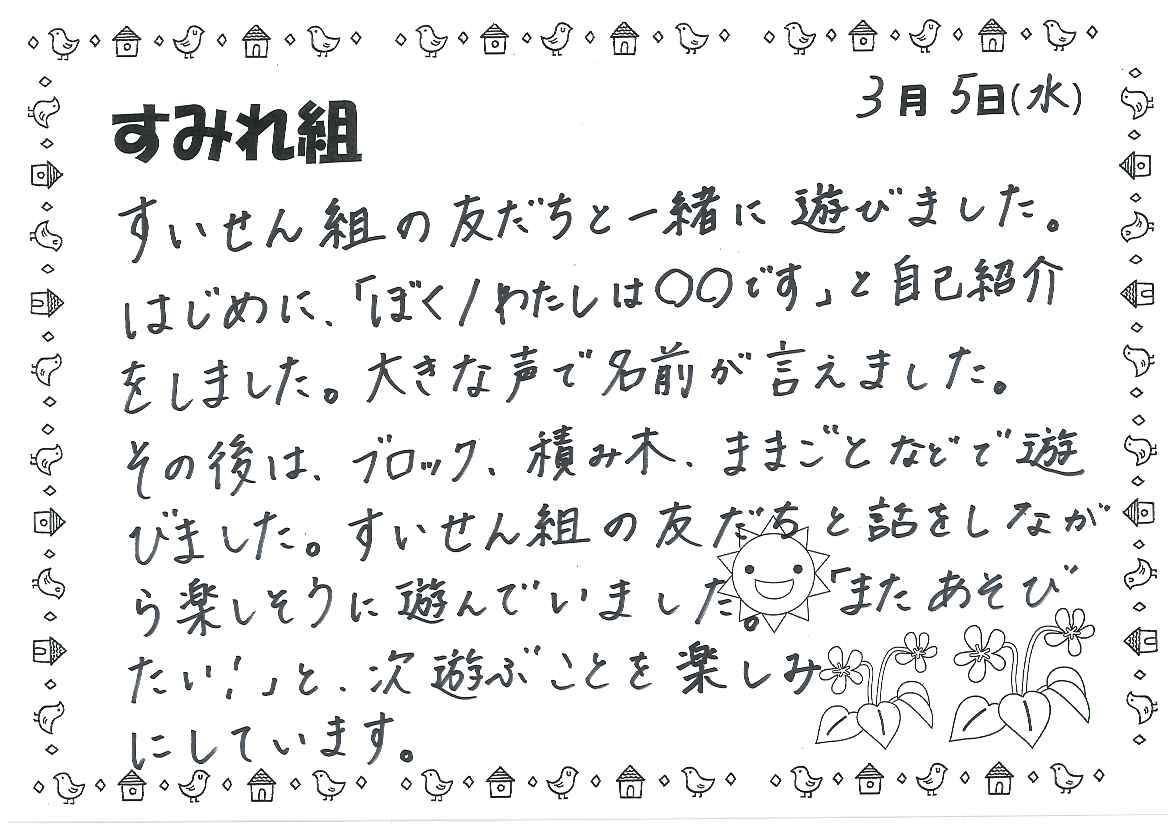 3月5日(水)
すみれ組
すいせん組の友だちと一緒に遊びました。
はじめに、「ぼく/わたしは〇〇です」と自己紹介
をしました。大きな声で名前が言えました。
その後は、ブロック、積み木、ままごとなどで遊
びました。すいせん組の友だちと話をしなが
ら楽しそうに遊んでいました。「またあそび
たい!」と、次遊ぶことを楽しみ
にしています。